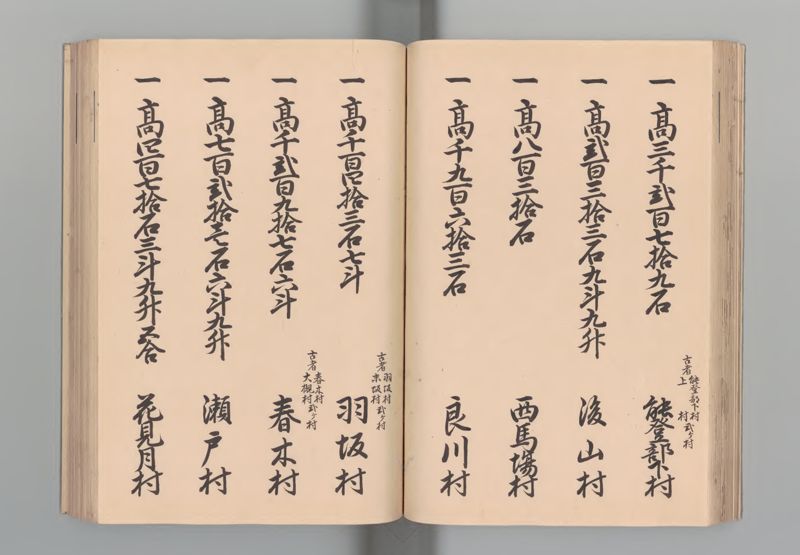 一 高三千弐百七拾九石
古者 能登部下村 弐ケ村
上 村
能登部下村
一 高弐百三拾三石九斗九升
後山村
一 高八百三拾石
西馬場村
一 高千九百六拾三石
良川村
一 高千百四拾三石七斗
古者 羽坂村 弐ケ村
末坂村
羽坂村
一 高千弐百九拾七石六斗
古者 春木村 弐ケ村
大槻村
春木村
一 高七百弐拾壱石六斗九升
瀬戸村
一 高四百七拾石三斗九升五合
花見月村